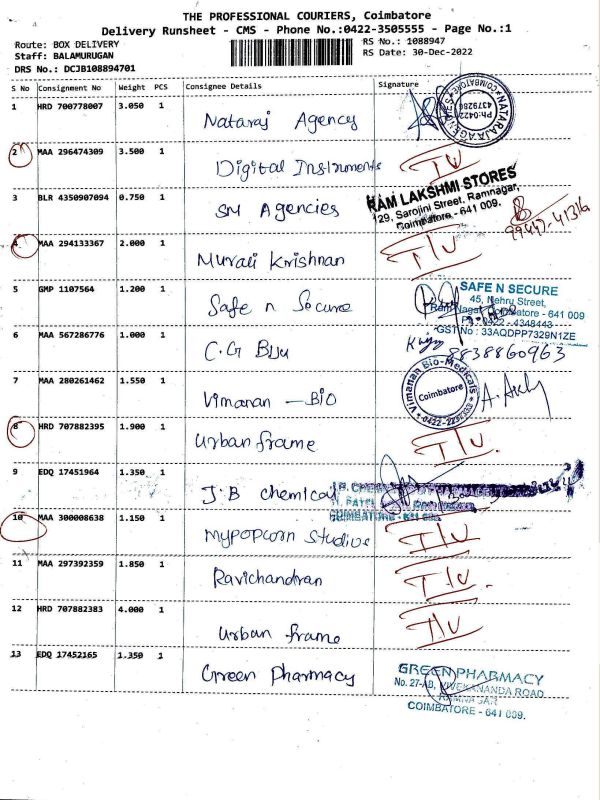 THE PROFESSIONAL COURIERS, Coimbatore
Delivery Runsheet - CMS - Phone No.:0422-3505555 - Page No.:1
Route: BOX DELIVERY
RS No.: 1088947
Staff: BALAMURUGAN
RS Date: 30-Dec-2022
DRS No.: DCJB108894701
S No Consignment No Weight PCS Consignee Details Signature
1 HRD 700778007 3.050 1 Nataraj Agency
NATARAJ AGENCIES COIMBATORE
2 MAA 296474309 3.500 1 Digital Instruments I/U
3 BLR 4350907094 0.750 1 SM Agencies
RAM LAKSHMI STORES
129, Sarojini Street, Ramnagar,
Coimbatore - 641 009.
4 MAA 294133367 2.000 1 Murali Krishnan I/U
5 GMP 1107564 1.200 1 Safe n Secure
SAFE N SECURE
45, Nehru Street,
Ram Nagar, Coimbatore - 641 009
Ph: 0422 - 4348443
GST No : 33AQDPP7329N1ZE
6 MAA 567286776 1.000 1 C.G Biju
8838860963
7 MAA 280261462 1.550 1 Vimanan - BIO
Vimanan Bio-Medicals
Coimbatore
8 HRD 707882395 1.900 1 Urban frame I/U
9 EDQ 17451964 1.350 1 J.B chemical
10 MAA 300008638 1.150 1 Mypopcorn Studios I/U
11 MAA 297392359 1.850 1 Ravichandran I/U
12 HRD 707882383 4.000 1 Urban frame I/U
13 EDQ 17452165 1.350 1 Green Pharmacy
GREEN PHARMACY
No. 27-AB, VIVEKANANDA ROAD
RAMNAGAR
COIMBATORE - 641 009.